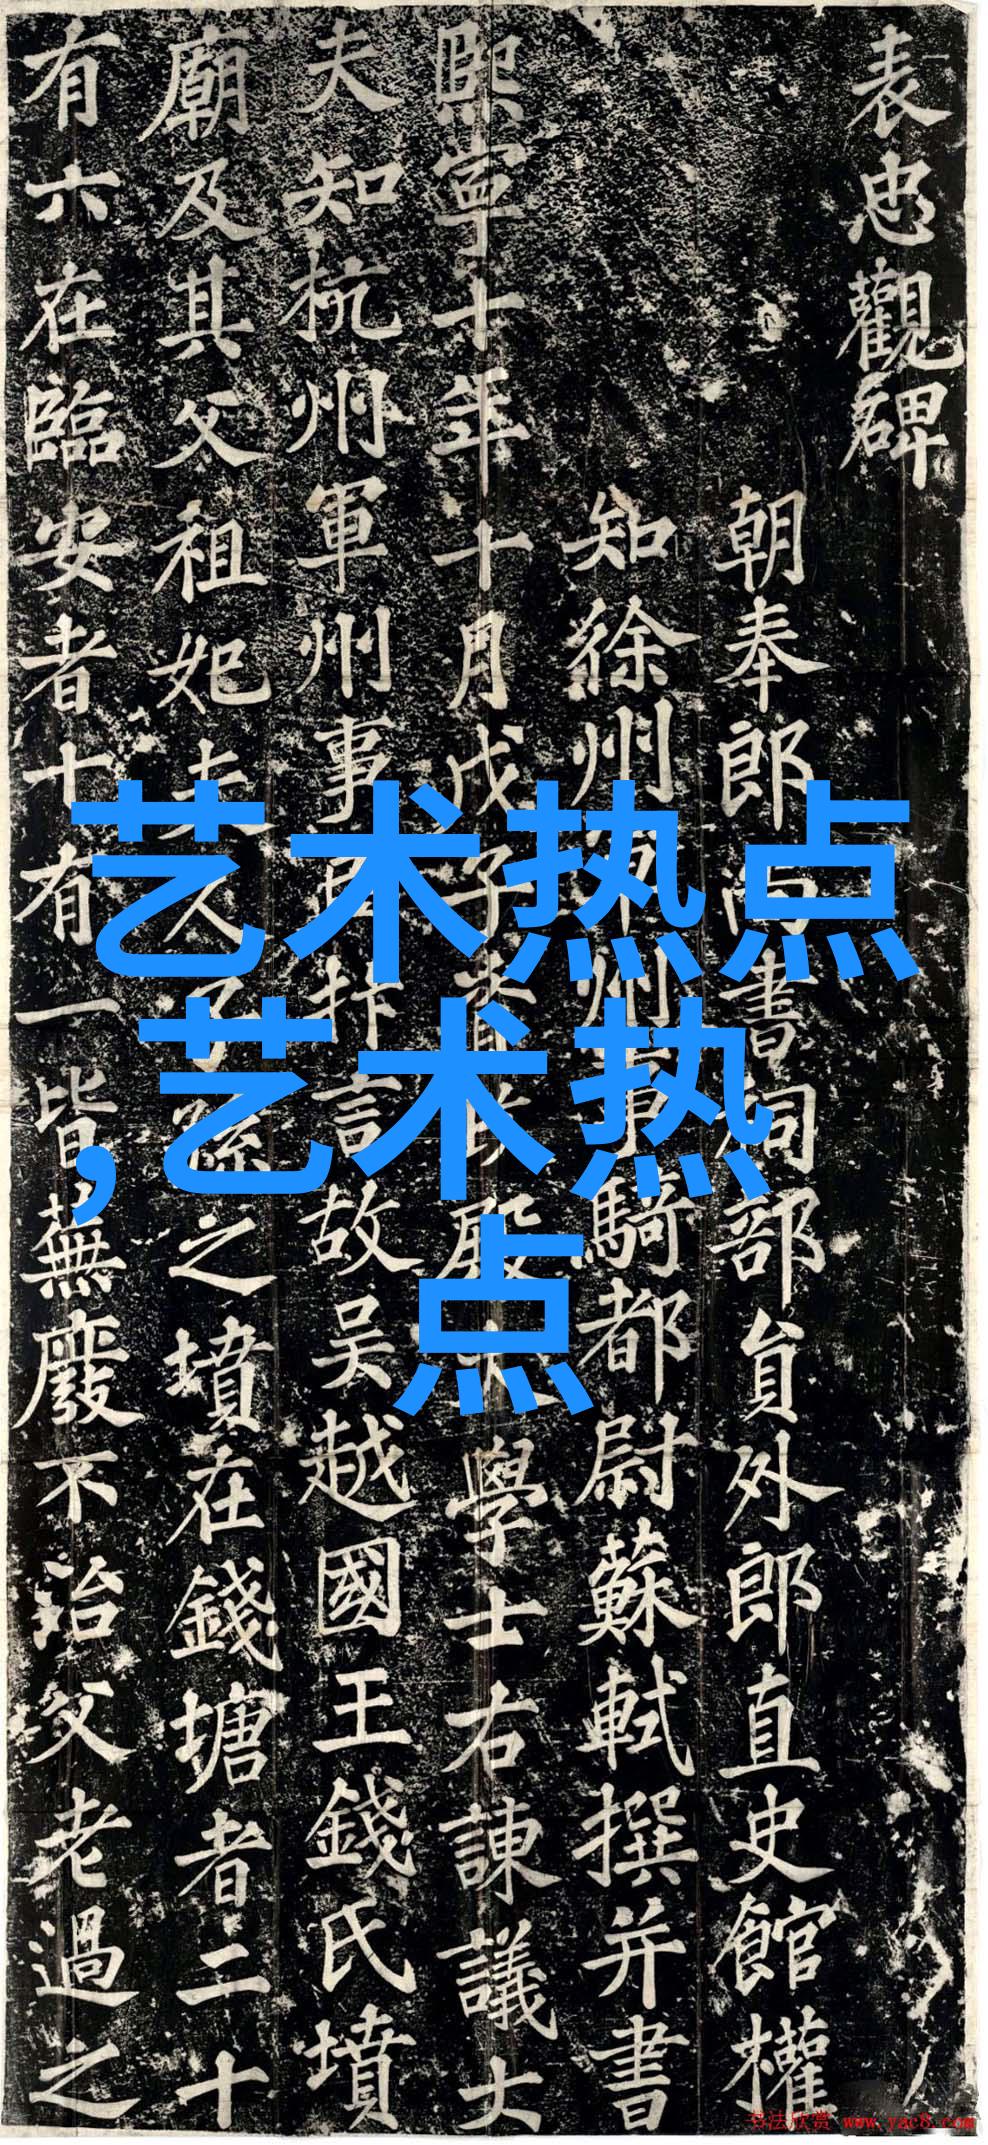 表忠觀碑
朝奉郎尚書祠部員外郎直史館權
知徐州軍州事騎都尉蘇軾撰并書
熙寧十年十月戊子資政殿大學士右諫議大
夫知杭州軍州事臣抃言故吳越國王錢氏墳
廟及其父祖妃夫人子孫之墳在錢塘者二十
有六在臨安者十有一皆蕪廢不治父老過之
艺术热点
,艺术热
点
书法欣赏 www.yac8.com